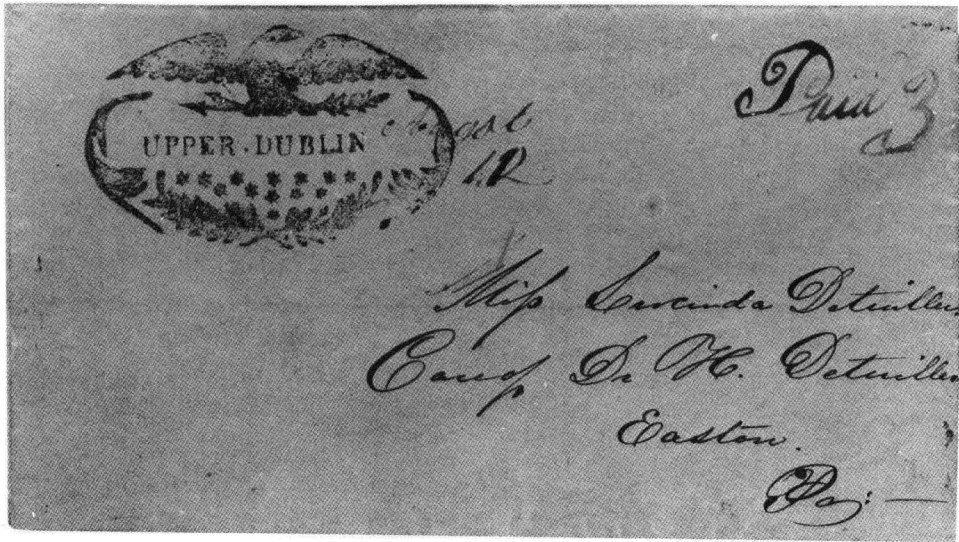 Paid 3
UPPER·DUBLIN
12
Miss Lucinda Detwiller
Care of Dr H. Detwiller
Easton.
Pa: —